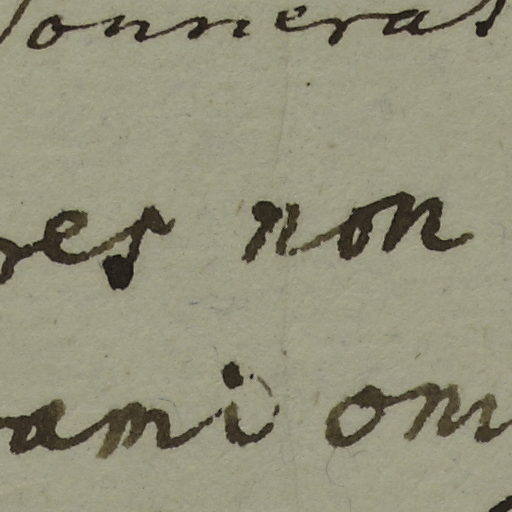 onneras
res non
ami om